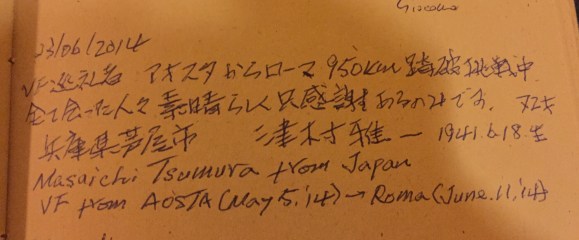 Giacomo
23/06/2014
VF巡礼者 アオスタからローマ 950km 踏破挑戦中
全て会った人々 素晴らしく只感謝あるのみです。
兵庫県芦屋市 津村雅一 1941.6.18.生
Masaichi Tsumura from Japan
VF from AOSTA (May 5.'14) → Roma (June.11,'14)